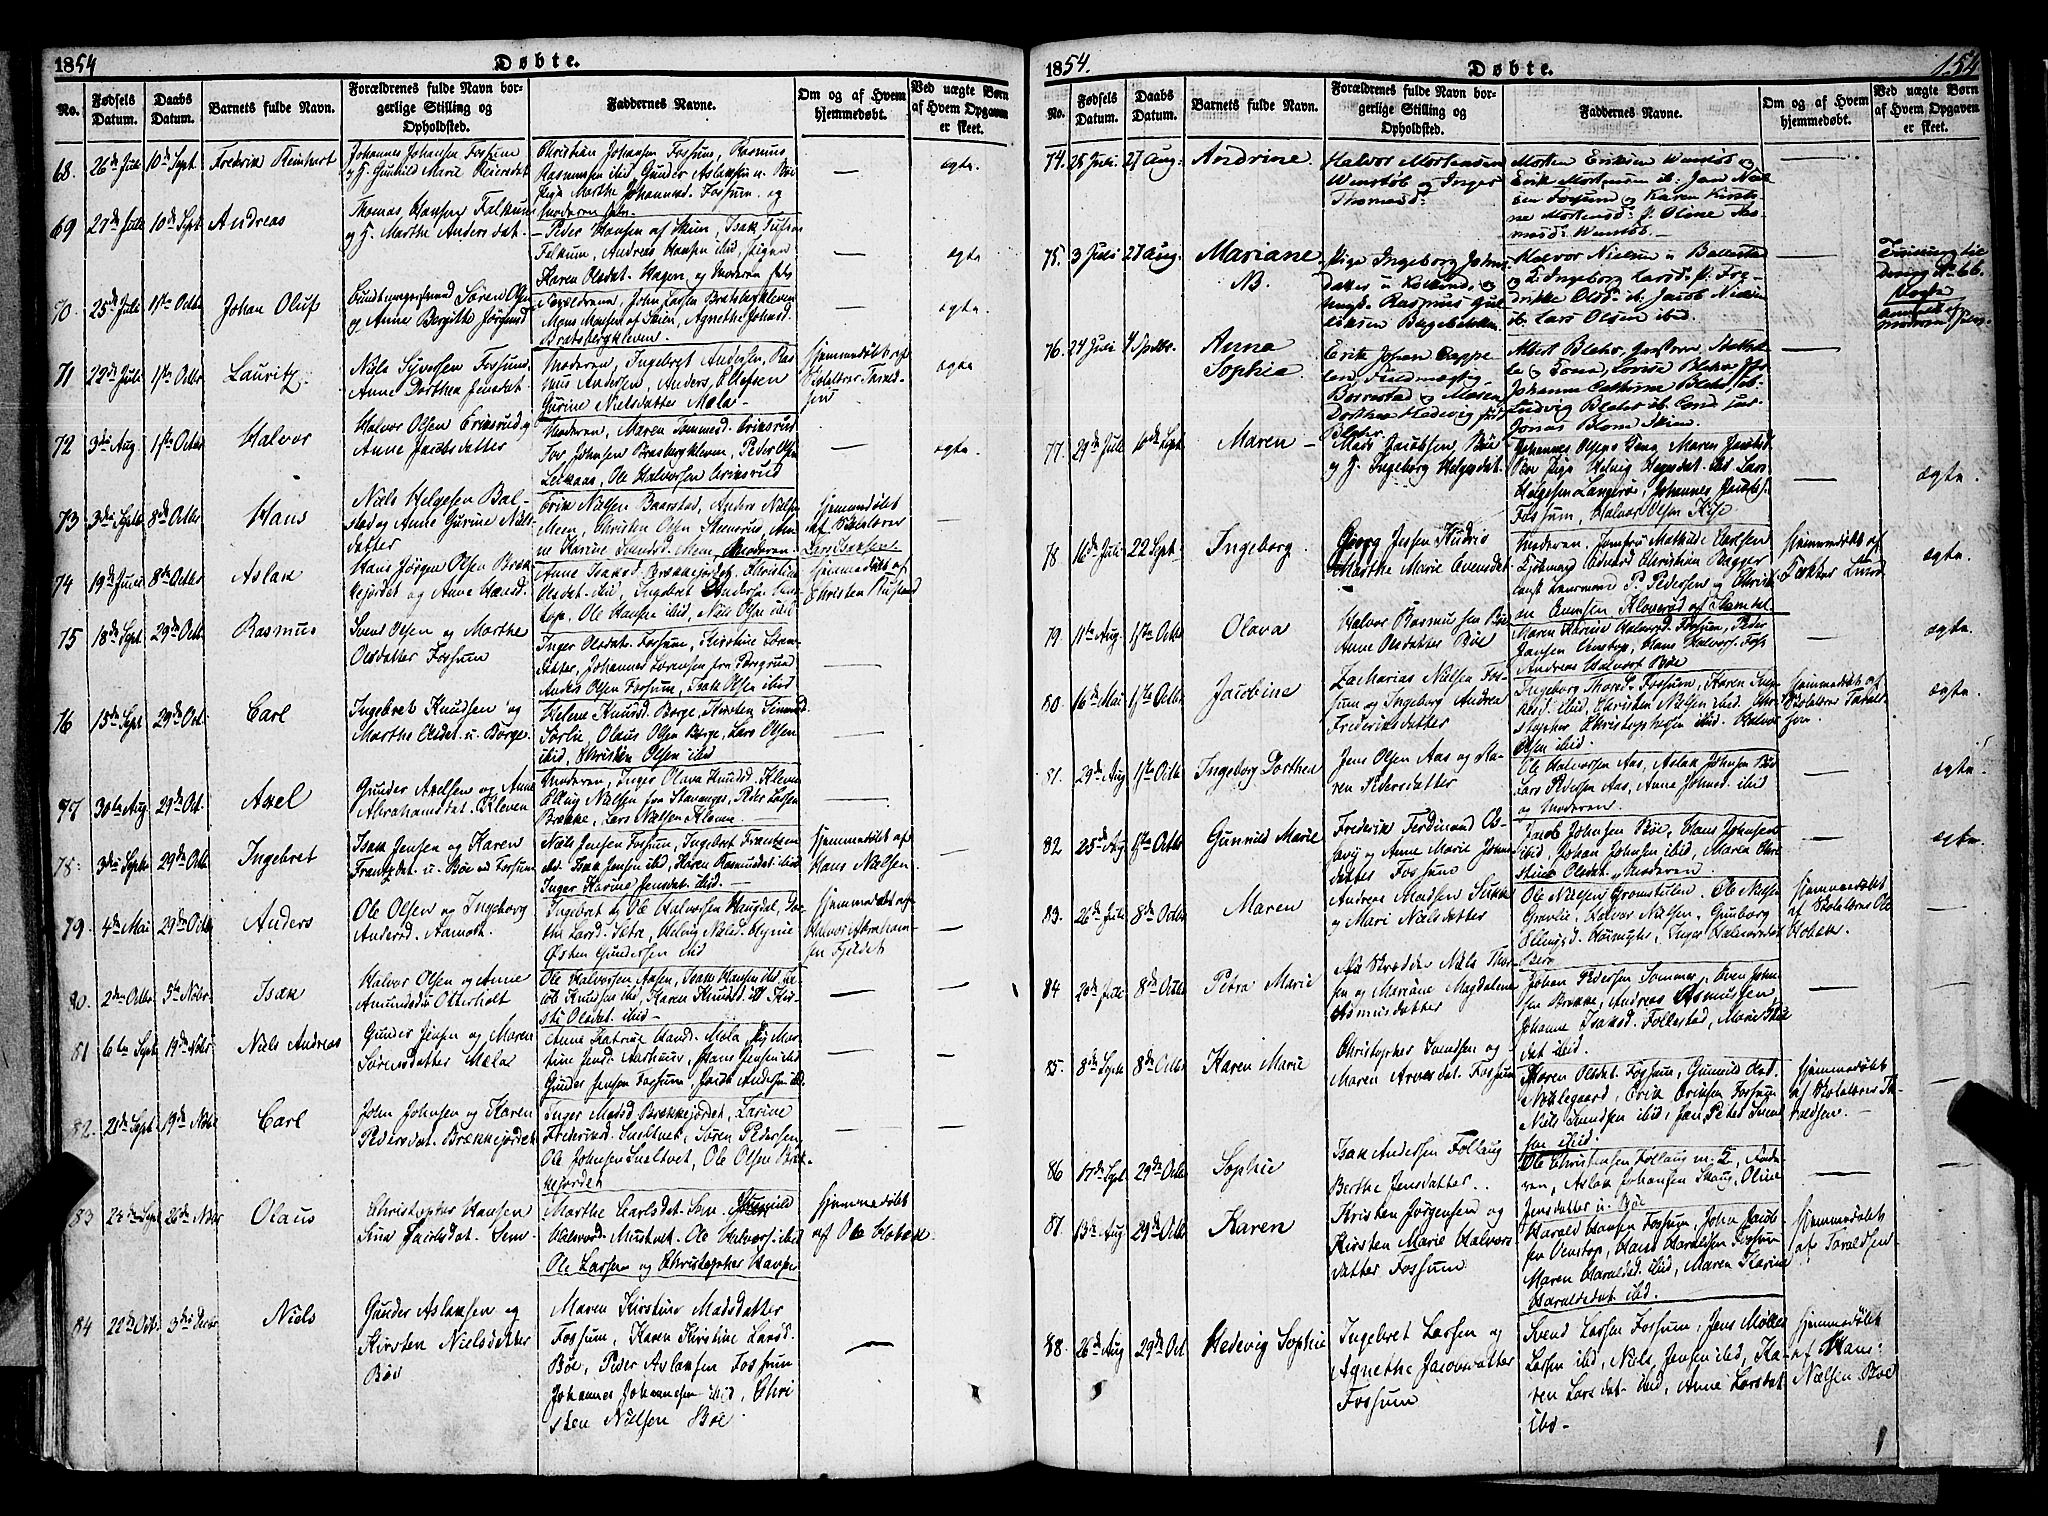 1854
Døbte.
No.
Fødsels Datum.
Daabs Datum.
Barnets fulde Navn.
Forældrenes fulde Navn borgerlige Stilling og Opholdsted.
Faddernes Navne.
Om og af Hvem hjemmedøbt.
Ved uægte Børn af Hvem Opgaven er skeet.
68. 26de Juli 10de Sept. Fredrik Reinhert
Johannes Johansen Fossum
og H. Gunhild Marie Reiersdat
Christian Johansen Fossum, Rasmus
Rasmussen ibid Gunder Aslaksen u. Bøe
Pige Marthe Johannesd. Fossum og
Moderen selv
— ægte
69 27de Juli 10de Sept. Andreas
Thomas Hansen Falkum
og H. Marthe Andersdat.
Peder Hansen af Skien, Isak
Falkum, Andreas Hansen ibid, Pigen
Karen Olsdat. Hagen og Moderen selv
— ægte
70 25de Juli 1ste Octbr Johan Oluf
Søren Olsen
og Anne Bergithe Jørgensd
Forældrene, John Larsen Bratsbergkleven
Mons Monsen af Skien, Agnethe Johnsd.
Bratsbergkleven.
— ægte.
71 22de Juli 1ste Octbr Lauritz.
Niels Syversen Fossum
Anne Dorthea Jensdat
Moderen, Ingebret Andersen, Ras-
mus Andersen, Anders Olefsen
Gurine Nielsdatter Mæla
Hjemmedøbt af
Skolelærer Tarald-
sen
ægte
72 3die Aug. 1ste Octbr Halvor
Halvor Olsen Erikrud og
Anne Jacobsdatter
Moderen, Maren Tommesd. Erikrud
Tov Johnsen Brasbergkleven, Peder Olsen
Leikaas, Ole Halvorsen Erikrud
— ægte.
73 3die Septr 8de Octbr Hans
Niels Helgesen Bal-
stad og Anne Gurine Niels-
datter
Erik Nielsen Baarstad, Anders Nielsen
Meen, Christen Olsen Stensrud, An-
ne Karine Svendsd. Mem, Moderen
Hjemmedøbt
af Skolelærer
Lars Isaksen
—
74 19de Juni 8de Octbr Aslak
Hans Jörgen Olsen Bræk-
kejordet og Anne Hansd.
Anne Isaksd. Brækkejordet. Christine
Olsdat. ibid, Ingebret Andersen
Ole Hansen ibid, Niels Olsen ibid
Hjemmedøbt af
Christen
75 18de Sept. 29de Octbr Rasmus
Svend Olsen og Marthe
Olsdatter Fossum
Inger Olsdat. Fossum, Kirstine Sören-
datter, Johannes Sörensen fra Porsgrund
Anders Olsen Fossum, Isak Olsen ibid
—
76 15de Sept. 29de Oct. Carl
Ingebret Knudsen og
Marthe Olsdat. u. Borge.
Helene Knudsd. Borge, Kirsten Simensd
Sörlie, Olaus Olsen Borge, Lars Olsen
ibid, Christen Olsen ibid
—
77 30te Aug 29de Oct. Axel
Gunder Axelsen og Anne
Abrahamsdat. Kleven
Moderen, Inger Olava Knudsd. Kleven
Elling Nielsen fra Stavanger, Peder Larsen
Brække, Lars Nielsen Kleven.
—
78. 3die Septr 29de Octbr Ingebret
Isak Jensen og Karen
Frantzdat. u. Bøe ved Fossum
Niels Jensen Fossum, Ingebret Frantzen
ibid, Isak Jensen ibid, Karen Rasmusdat ibid
Inger Karine Jensdat. ibid.
Hjemmedøbt af
Hans Nielsen
—
79. 4de Mai 29de Octb Anders
Ole Olsen og Ingeborg
Andersd. Aamodt.
Ingebret og Ole Halvorsen Haugdal,
Larsd. Sætre, Helvig Nielsd.
Østen Gundersen ibid
Hjemmedøbt af
Halvor Abraham-
sen Fjeldet
—
80. 2den Octbr 5te Nobr Isak
Halvor Olsen og Anne
Amundsdtr Otterholt
Ole Halvorsen Aasen, Isak Hansen ibid,
Knudsen ibid, Karen Knudsd. ibid Kir-
sti Olsdat. ibid
—
81 6te Sept. 19de Nobr Niels Andreas
Gunder Jensen og Maren
Sørensdatter Mæla
Anne Katrine Hansd. Mæla, Mar-
tine Jensd. Aarhuus, Hans Jensen ibid
Gunder Jensen Fossum, Jacob Andersen ibid.
— —
82. 21de Sept 19de Nobr Carl
John Johnsen og Karen
Pedersdat. Brækkejordet
Inger Madsd. Brækkejordet, Larine
Frederiksd. Sneltvet, Sören Pedersen
Ole Johnsen Sneltvet, Ole Olsen Bræk-
kejordet
— —
83 22de Sept 26de Nobr Olaus
Christopher Hansen
Siva Jacobsdat. Sem
Marthe Carlsdat. Sem Gunild
Halvorsd. Mustvet. Ole Halvors. ibid
Ole Larsen og Christopher Hansen
Hjemmedøbt
af Ole Hobæk.
84 22de Octb. 3die Decbr Niels
Gunder Aslaksen og
Kirsten Nielsdatter
Bøe
Maren Kirstine Madsdatter
Fossum, Karen Kirstine Larsd.
Bøe, Peder Aslaksen Fossum
Johannes Johannesen ibid, Chri
sten Nielsen Bøe.
—
1854.
Døbte.
154
No.
Fødsels Datum.
Daabs Datum.
Barnets fulde Navn.
Forældrenes fulde Navn borgerlige Stilling og Opholdsted.
Faddernes Navne.
Om og af Hvem hjemmedøbt.
Ved uægte Børn af Hvem Opgaven er skeet.
74. 25 Juli 27 Aug. Andrine.
Halvor Mortensen
Wenstöb og Inger
Thomasd:
Morten Eriksen Wenstöb og
Erik Mortensen ib: Jens Niel-
sen Fossum og Karen Kirsti-
ne Mortensd: J. Oline Tho-
masd: Wenstöb.
—
75. 3 Juli 27 Aug. Mariane
N.
Pige Ingeborg Johns-
datter u Kollund, og
Rasmus Gul-
liksen Bagebakken
Halvor Nielsen u Ballestad
og Ingeborg Larsd: p. Fre-
drikke Olsd: ib: Jacob Nielsen
ib. Lars Olsen ibid.
76. 24 Juli 4 Septbr. Anna
Sophia
Erik Johan Cappe-
len, Fuldmægtig
Borrestad og Maren
Dorthea Hedevig født
Blehr
Albert Blehr,
Tona Lovise Blehr
Johanna Cathrine Blehr ib.
Ludvig Blehr ib.
Jonas Blom Skien.
—
77. 29de Juli 10de Sept Maren
Mads Jacobsen, Bøe
og H. Ingeborg Helgesdat.
Johannes Olsens Maren Jacobsd.
Bøe Pige Helvig ibid Lars
Helgesen Langerøe, Johannes Jacobs.
Fossum, Halvor Olsen Kise
— ægte.
78 16de Juli 22 Sept. Ingeborg.
Georg Jensen
Marthe Marie Evensdat.
Moderen, Jomfru Mathilde Carlsen
Edvard Christian Bagger
P. Pedersen og Christi-
an Evensen Kloverød af Slemdal
Hjemmedøbt af
Lund
ægte
79. 11te Aug. 1ste Octbr Olava
Halvor Rasmussen Bøe
Anne Olsdatter Bøe
Maren Karine Halvorsd. Fossum, Peder
Jansen Venstop, Hans Halvors. Foss.
Andreas Halvors. Bøe
— ægte
80. 16de Mai 1ste Octbr. Jacobine
Zacharias Nielsen Fos-
sum og Ingeborg Andrea
Frederiksdatter
Ingeborg Thorsd. Fossum, Karen
ibid. Christen Nielsen ibid. Chri-
stopher Christophersen ibid. Halvor
Olsen ibid.
Hjemmedøbt af
Skolelærer Tarald-
sen.
ægte.
81. 29de Aug 1ste Octbr Ingeborg Dorthea
Jens Olsen Aas og Ka-
ren Pedersdatter
Ole Halvorsen Aas, Aslak Johnsen Bøe
Lars Pedersen Aas, Anne Johnsd. ibid
og Moderen.
— ægte.
82 25de Aug 1ste Octbr Gunnild Marie
Frederik Ferdinand
og Anne Marie Johns-
datter Fossum
Jacob Johnsen Bøe, Hans Johnsen
ibid, Johan Johnsen ibid, Maren Chri-
stine Olsdat. og Moderen.
— ægte.
83. 26de Juli 8de Octbr Maren
Andreas Madsen
og Mari Nielsdatter
Ole Nielsen Gromstulen. Ole Nielsen
Gravlie, Halvor Nielsen, Gunborg
Ellingsd. Inger Halvorsdat
Hjemmedøbt
af Skolelærer Ole
Hobæk.
—
84 20de Juli 8de Octbr Petra Marie
Skrædder Niels Thor-
sen og Mariane Magdalene
Asmusdatter
Johan Pedersen Sommer, Even John-
sen Brække, Andreas Asmussen,
Johanne Isaksd. Follestad, Marie
dat ibid.
— —
85. 8de Septr 8de Octbr Karen Marie
Christopher Svendsen og
Maren Arnesdat. Fossum
Maren Olsdat. Fossum, Gunild Olsd.
Erik Eriksen Fossum
Niels Svendsen ibid, Jan Peter Svend
sen ibid.
Hjemmedøbt
af Skolelærer Ta-
raldsen.
—
86 17de Sept 29de Octbr Sophie
Isak Andersen Follaug
Berthe Jensdatter.
Ole Christensen Follaug
Aslak Johansen Skaug, Oline
Jensdatter u. Bøe
— —
87. 13de Aug 29de Octbr Karen
Kristen Jörgensen og
Kirsten Marie Halvors-
datter Fossum
Harald Hansen Fossum, John Jacob-
sen Venstop, Hans Haraldsen Fossum
Maren Haraldsd. ibid, Maren Karine
Haraldsdat ibid.
Hjemmedøbt
af Taraldsen
—
88. 26de Aug 29de Oct. Hedevig Sophie
Ingebret Larsen og
Agnethe Jacobsdatter
Fossum
Svend Larsen Fossum, Jens Møller
Larsen ibid, Niels Jensen ibid, Ka-
ren Larsdat. ibid, Anne Larsdat
ibid.
Hjemmedøbt
af Hans
Nielsen Bøe